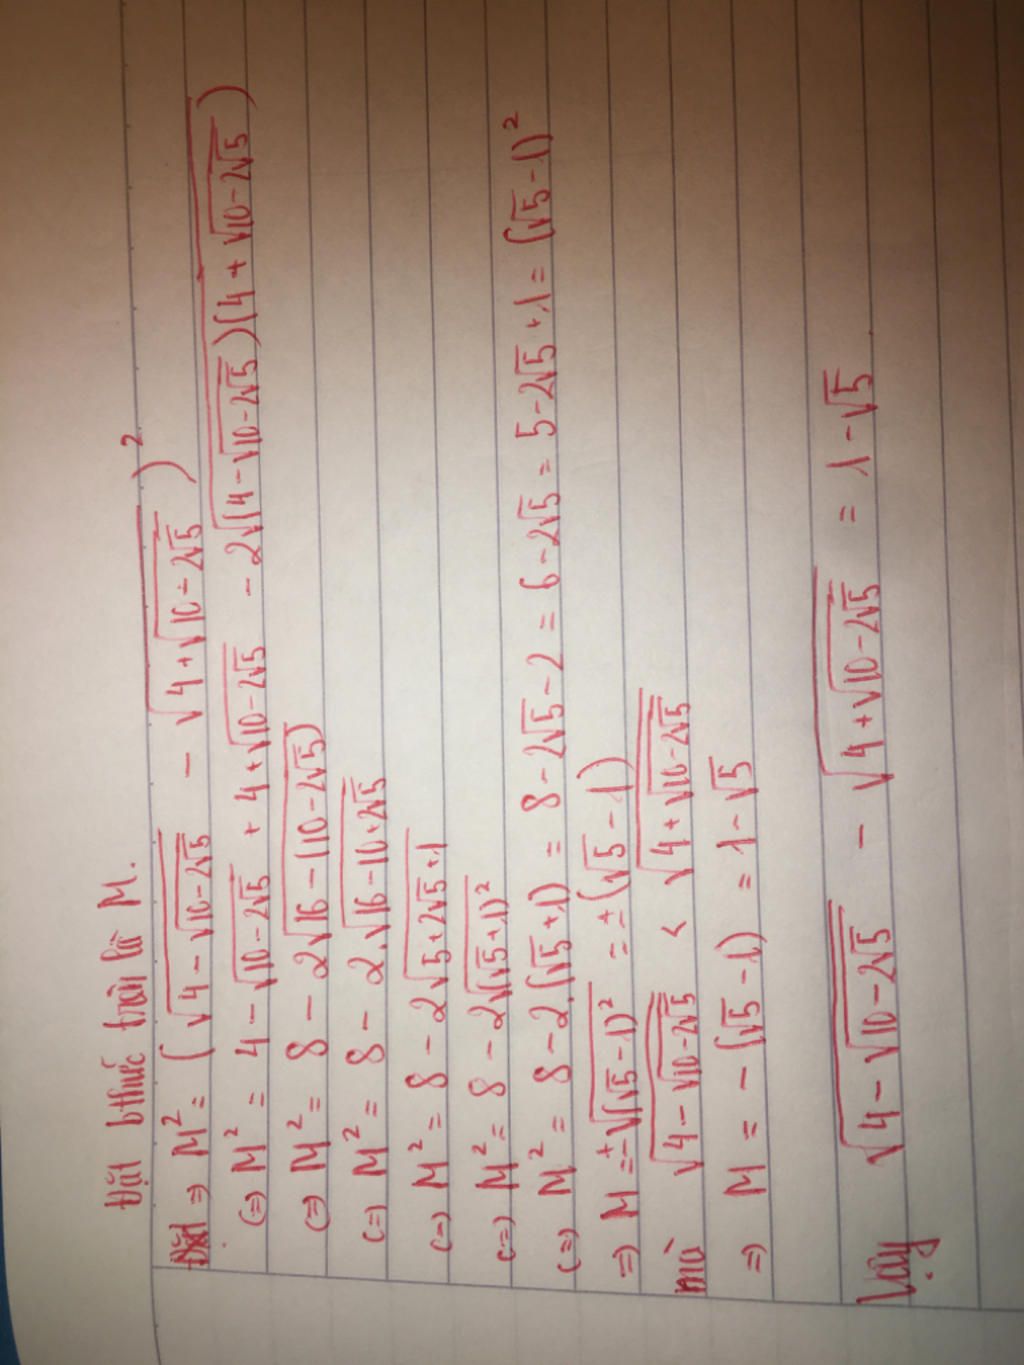 Đặt bthức trên là M.
=> M² = (√(4-√(10-2√5)) - √(4+√(10-2√5)))²
(=) M² = 4 - √(10-2√5) + 4+√(10-2√5) - 2√((4-√(10-2√5))(4+√(10-2√5)))
(=) M² = 8 - 2√(16-(10-2√5))
(=) M² = 8 - 2.√(16-10+2√5)
(=) M² = 8 - 2√(5+2√5+1)
(=) M² = 8 - 2√((√5+1)²)
(=) M² = 8-2.(√5+1) = 8-2√5-2 = 6-2√5 = 5-2√5+1 = (√5-1)²
=> M = ±√((√5-1)²) = ±(√5-1)
mà √(4-√(10-2√5)) < √(4+√(10-2√5))
=> M = -(√5-1) = 1-√5
Vậy √(4-√(10-2√5)) - √(4+√(10-2√5)) = 1-√5